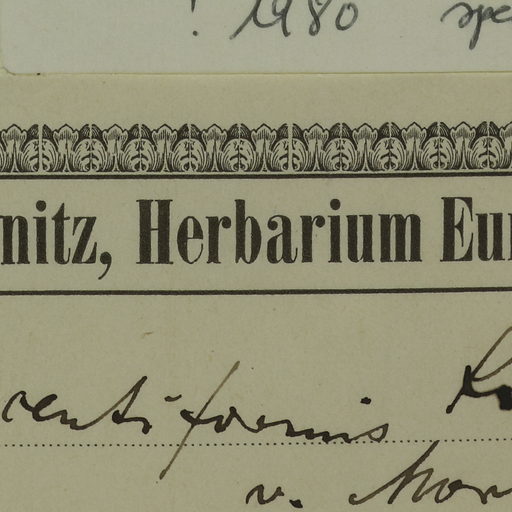 ! 1980 spe
nitz, Herbarium Eur
centiformis
v. Mor